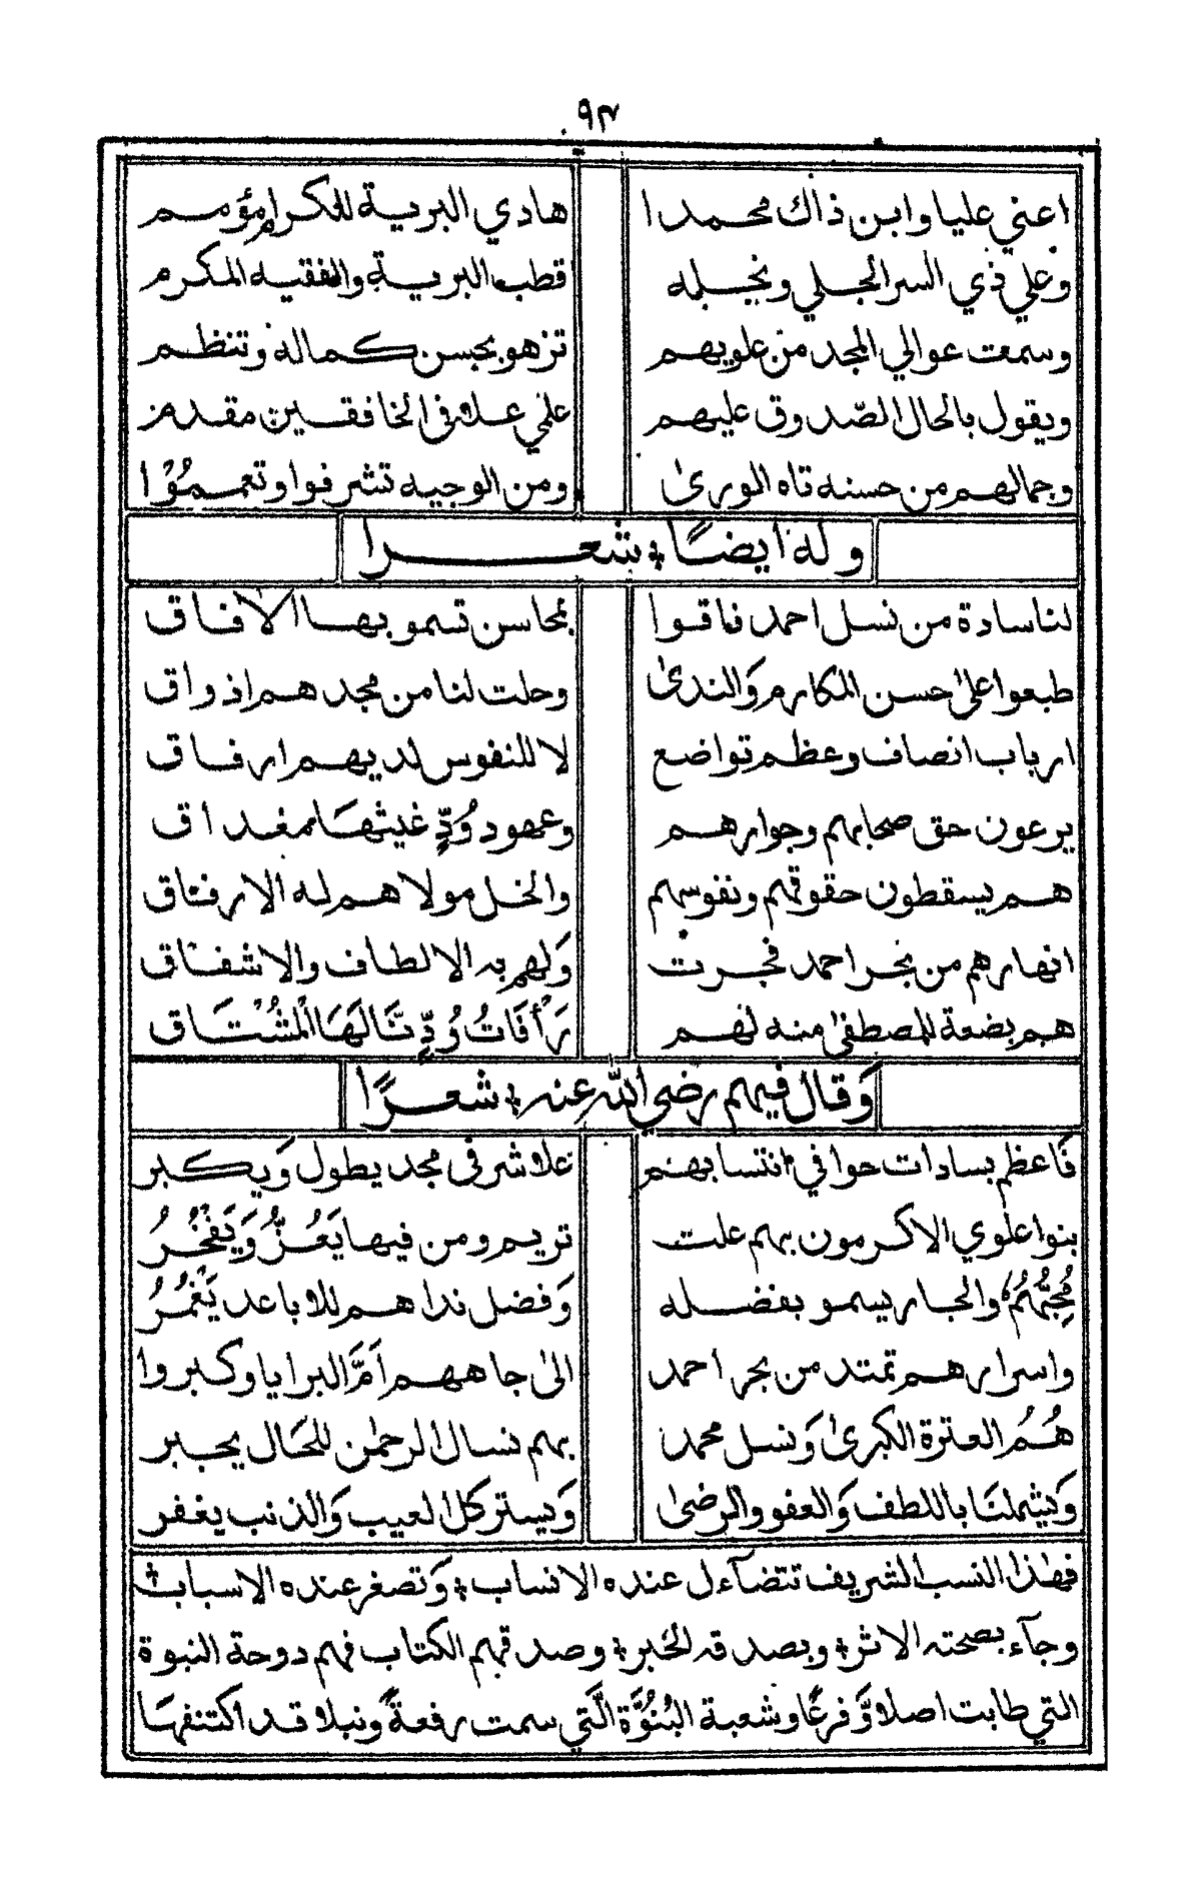 ٩٣
اعني عليا وابن ذاك محمدا هادي البرية للكرام مؤمم
وعلي ذي السر الجلي ونجله قطب البرية والفقيه المكرم
وسمت عوالي المجد من علويهم تزهو بحسن كماله وتنظم
ويقول بالحال الصّدوق عليهم علمي علا في الخافقين مقدم
وجمالهم من حسنه تاه الورى ومن الوجيه تشرفوا وتعمموا
وله ايضًا شعرا
لنا سادة من نسل احمد فاقوا بمحاسن تسمو بها الآفاق
طبعوا على حسن المكارم وَالندى وحلت لنا من مجدهم اذواق
ارباب انصاف وعظم تواضع لا للنفوس لديهم ارفاق
يرعون حق صحابهم وجوارهم وعهود وُدٍّ غيثهَا مغداق
هم يسقطون حقوقهم ونفوسهم والخل مولاهم له الارفاق
انهارهم من بحر احمد فجرت وَلهم به الالطاف والاشفاق
هم بضعة للمصطفى منه لهم رَأْفَاتُ وُدٍّ نَالَهَا الْمُشْتَاق
وَقال فيهم رضي الله عنه شعرًا
فَاعظم بسادات حوا في انتسابهم علا شرفى مجد يطول وَيكبر
بنوا علوي الاكرمون بهم علت تريم ومن فيها يَعُزُّ وَيَفْخُرُ
مُحِبُّهُمُ والجار يسمو بفضله وَفضل نداهم للاباعد يَغْمُرُ
واسرارهم تمتد من بحر احمد الى جاههم اَمَّ البرايا وكبروا
هُمُ العترة الكبرى وَنسل محمد بهم نسال الرحمٰن للحَال يجبر
وَيشملنَا باللطف وَالعفو والرضى وَيستر كل العيب وَالذنب يغفر
فهٰذا النسب الشريف تتضآءل عنده الانساب وَتصغر عنده الاسباب
وجآء بصحته الاثر وبصدقه الخبر وصدقهم الكتاب فهم دوحة النبوة
التي طابت اصلا وَّفرعًا وشعبة البُنُوَّة الَّتي سمت رفعةً ونبلا قد اكتنفهَا